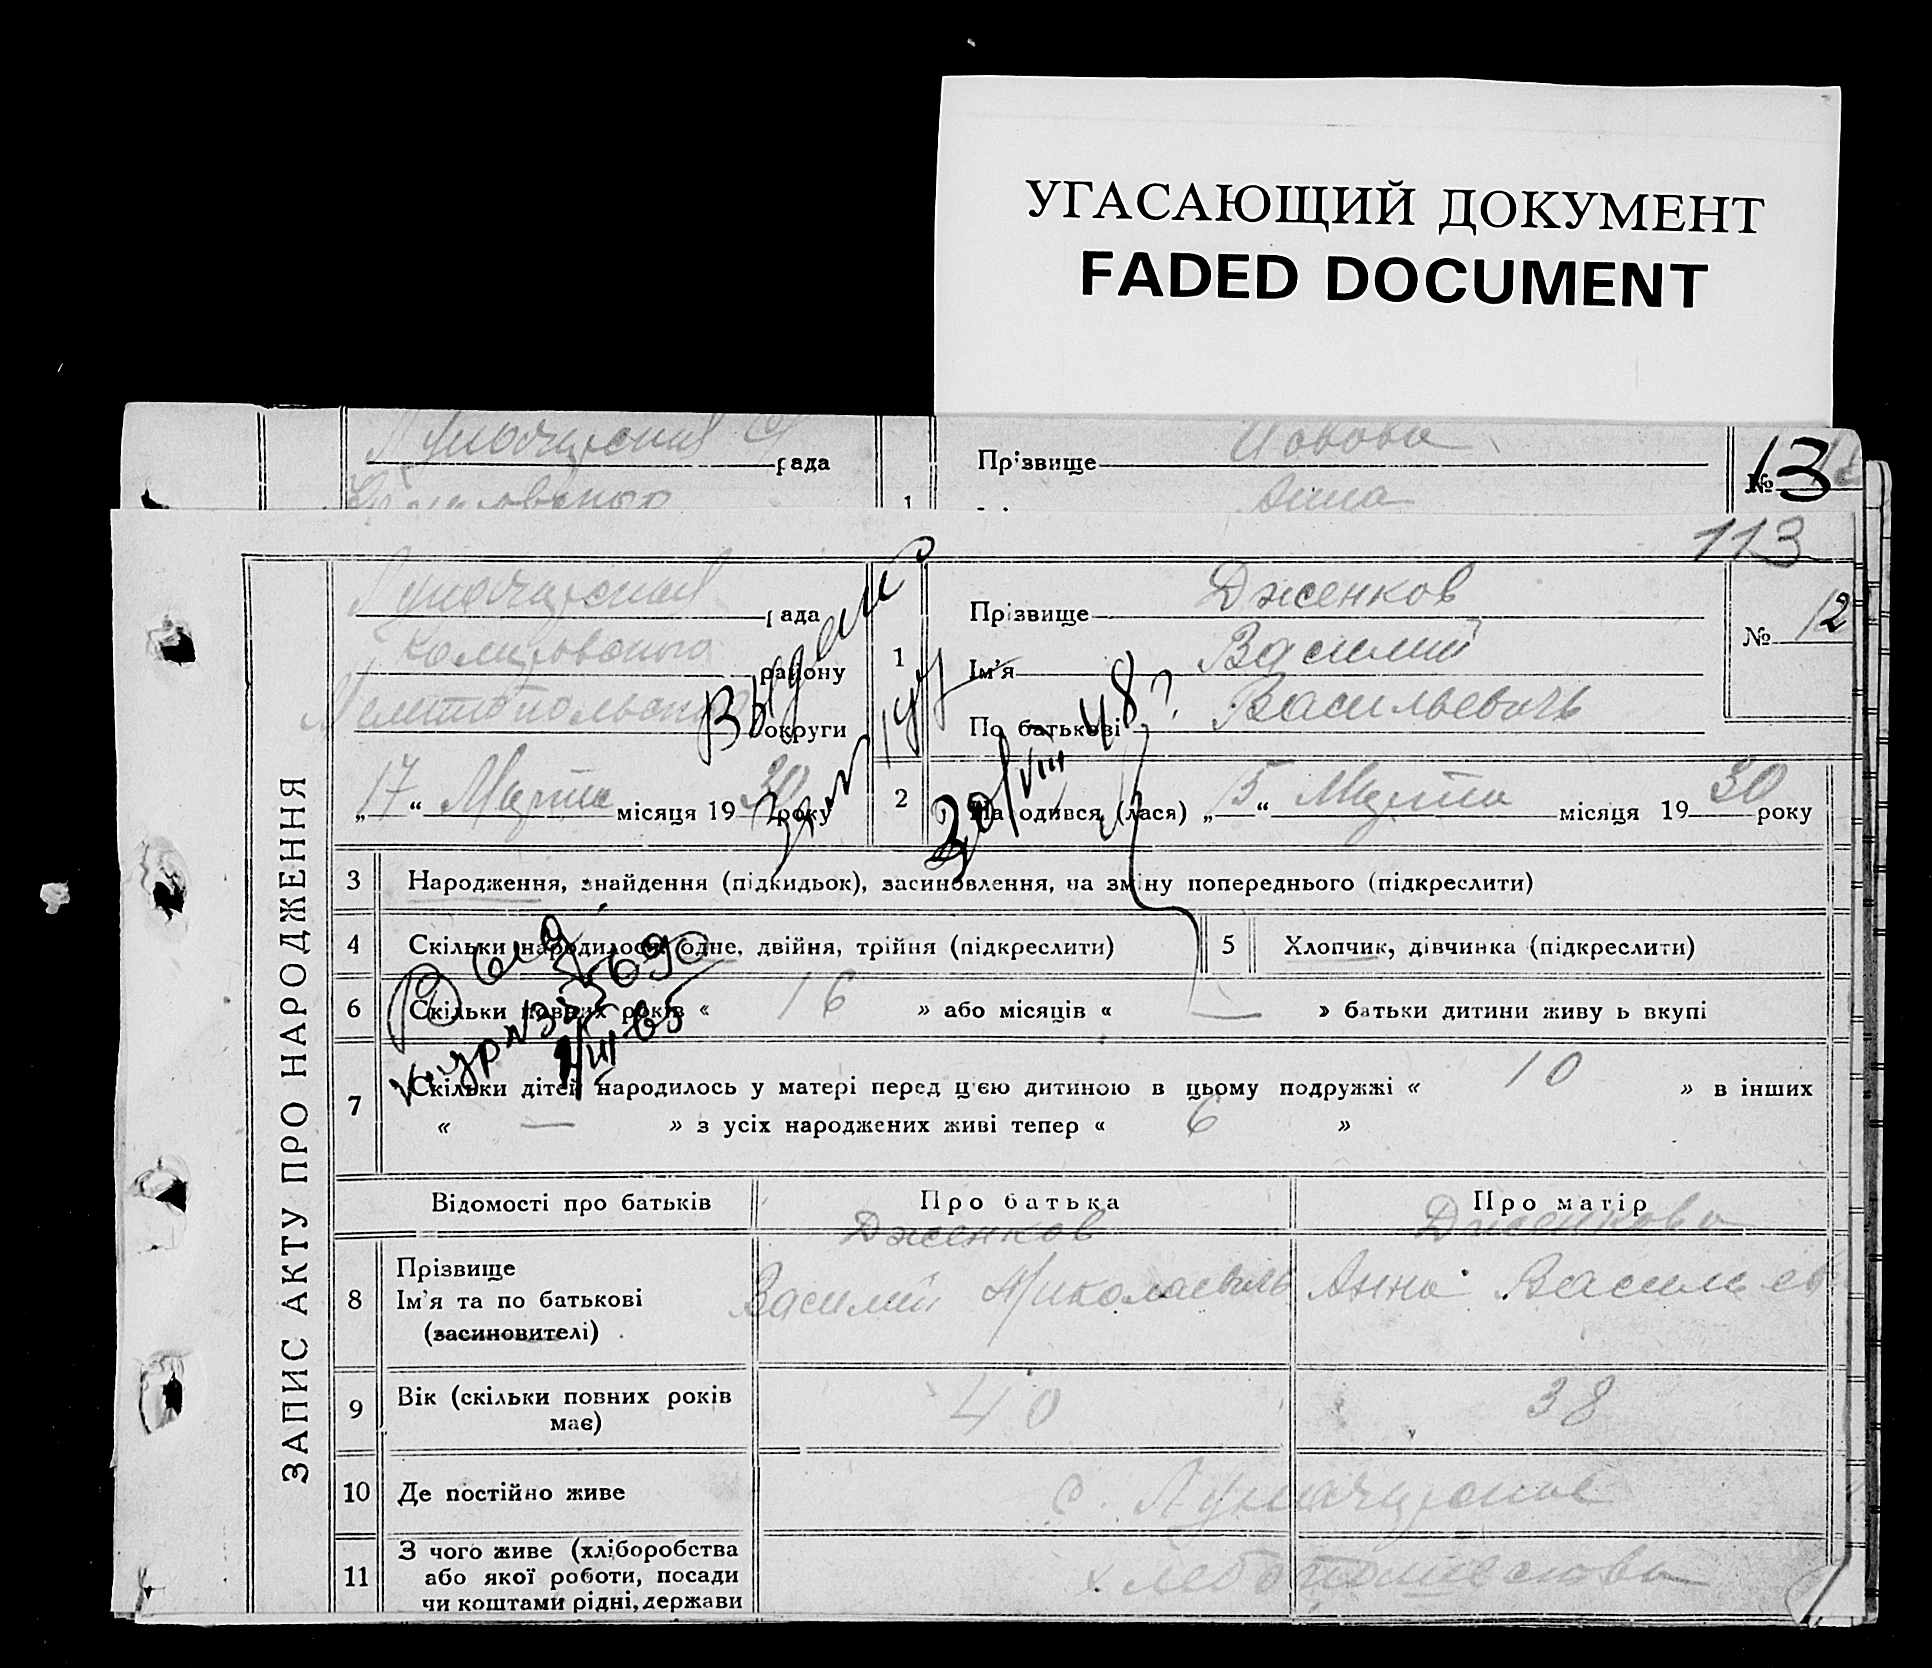 УГАСАЮЩИЙ ДОКУМЕНТ
FADED DOCUMENT
рада
Прізвище Попова
№ 13
Анна
1
113
ЗАПИС АКТУ ПРО НАРОДЖЕННЯ
Луначарская рада
району
Мелитопольской округи
1
Прізвище Дженков
Ім'я Василий
По батькові Васильевичь
№ 12
„ 17 “ Марта місяця 19 30 року
2
Народився (лася) „ 15 “ Марта місяця 19 30 року
Выдано
30/VIII 48
3 Народження, знайдення (підкидьок), засиновлення, на зміну попереднього (підкреслити)
4 Скільки народилося: одне, двійня, трійня (підкреслити)
5 Хлопчик, дівчинка (підкреслити)
6 Скільки повних років « 16 » або місяців « — » батьки дитини живуть вкупі
7 Скільки дітей народилось у матері перед цією дитиною в цьому подружжі « 10 » в інших
« — » з усіх народжених живі тепер « 6 »
Відомості про батьків
Про батька
Про матір
8 Прізвище
Ім'я та по батькові
(засиновителі)
Дженков
Василий Николаевичь
Дженкова
Анна
9 Вік (скільки повних років
має)
40
38
10 Де постійно живе
с. Луначарское
11 З чого живе (хліборобства
або якої роботи, посади
чи коштами рідні, держави